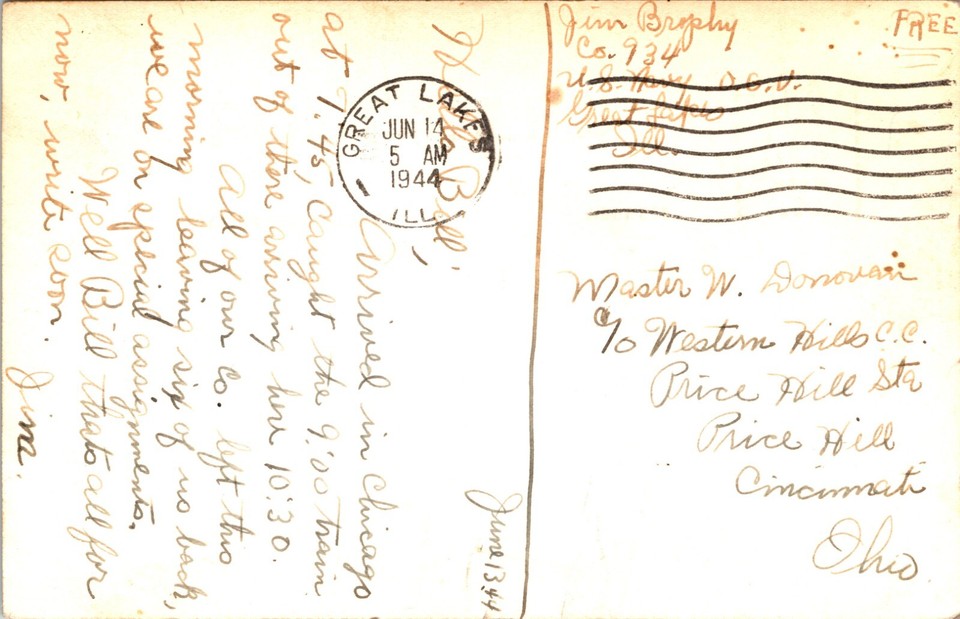 June 13, 44
Hello Bill,
Arrived in Chicago
at 7:45, Caught the 9:00 train
out of there arriving here 10:30.
All of our Co. left this
morning leaving six of us back,
we are on special assignments.
Well Bill thats all for
now, write soon.
Jim.
GREAT LAKES
JUN 14
5 AM
1944
ILL.
Jim Brophy
Co. 934
U.S. Navy
Great Lakes
Ill.
FREE
Master W. Donovan
c/o Western Hills C.C.
Price Hill Sta
Price Hill
Cincinnati
Ohio